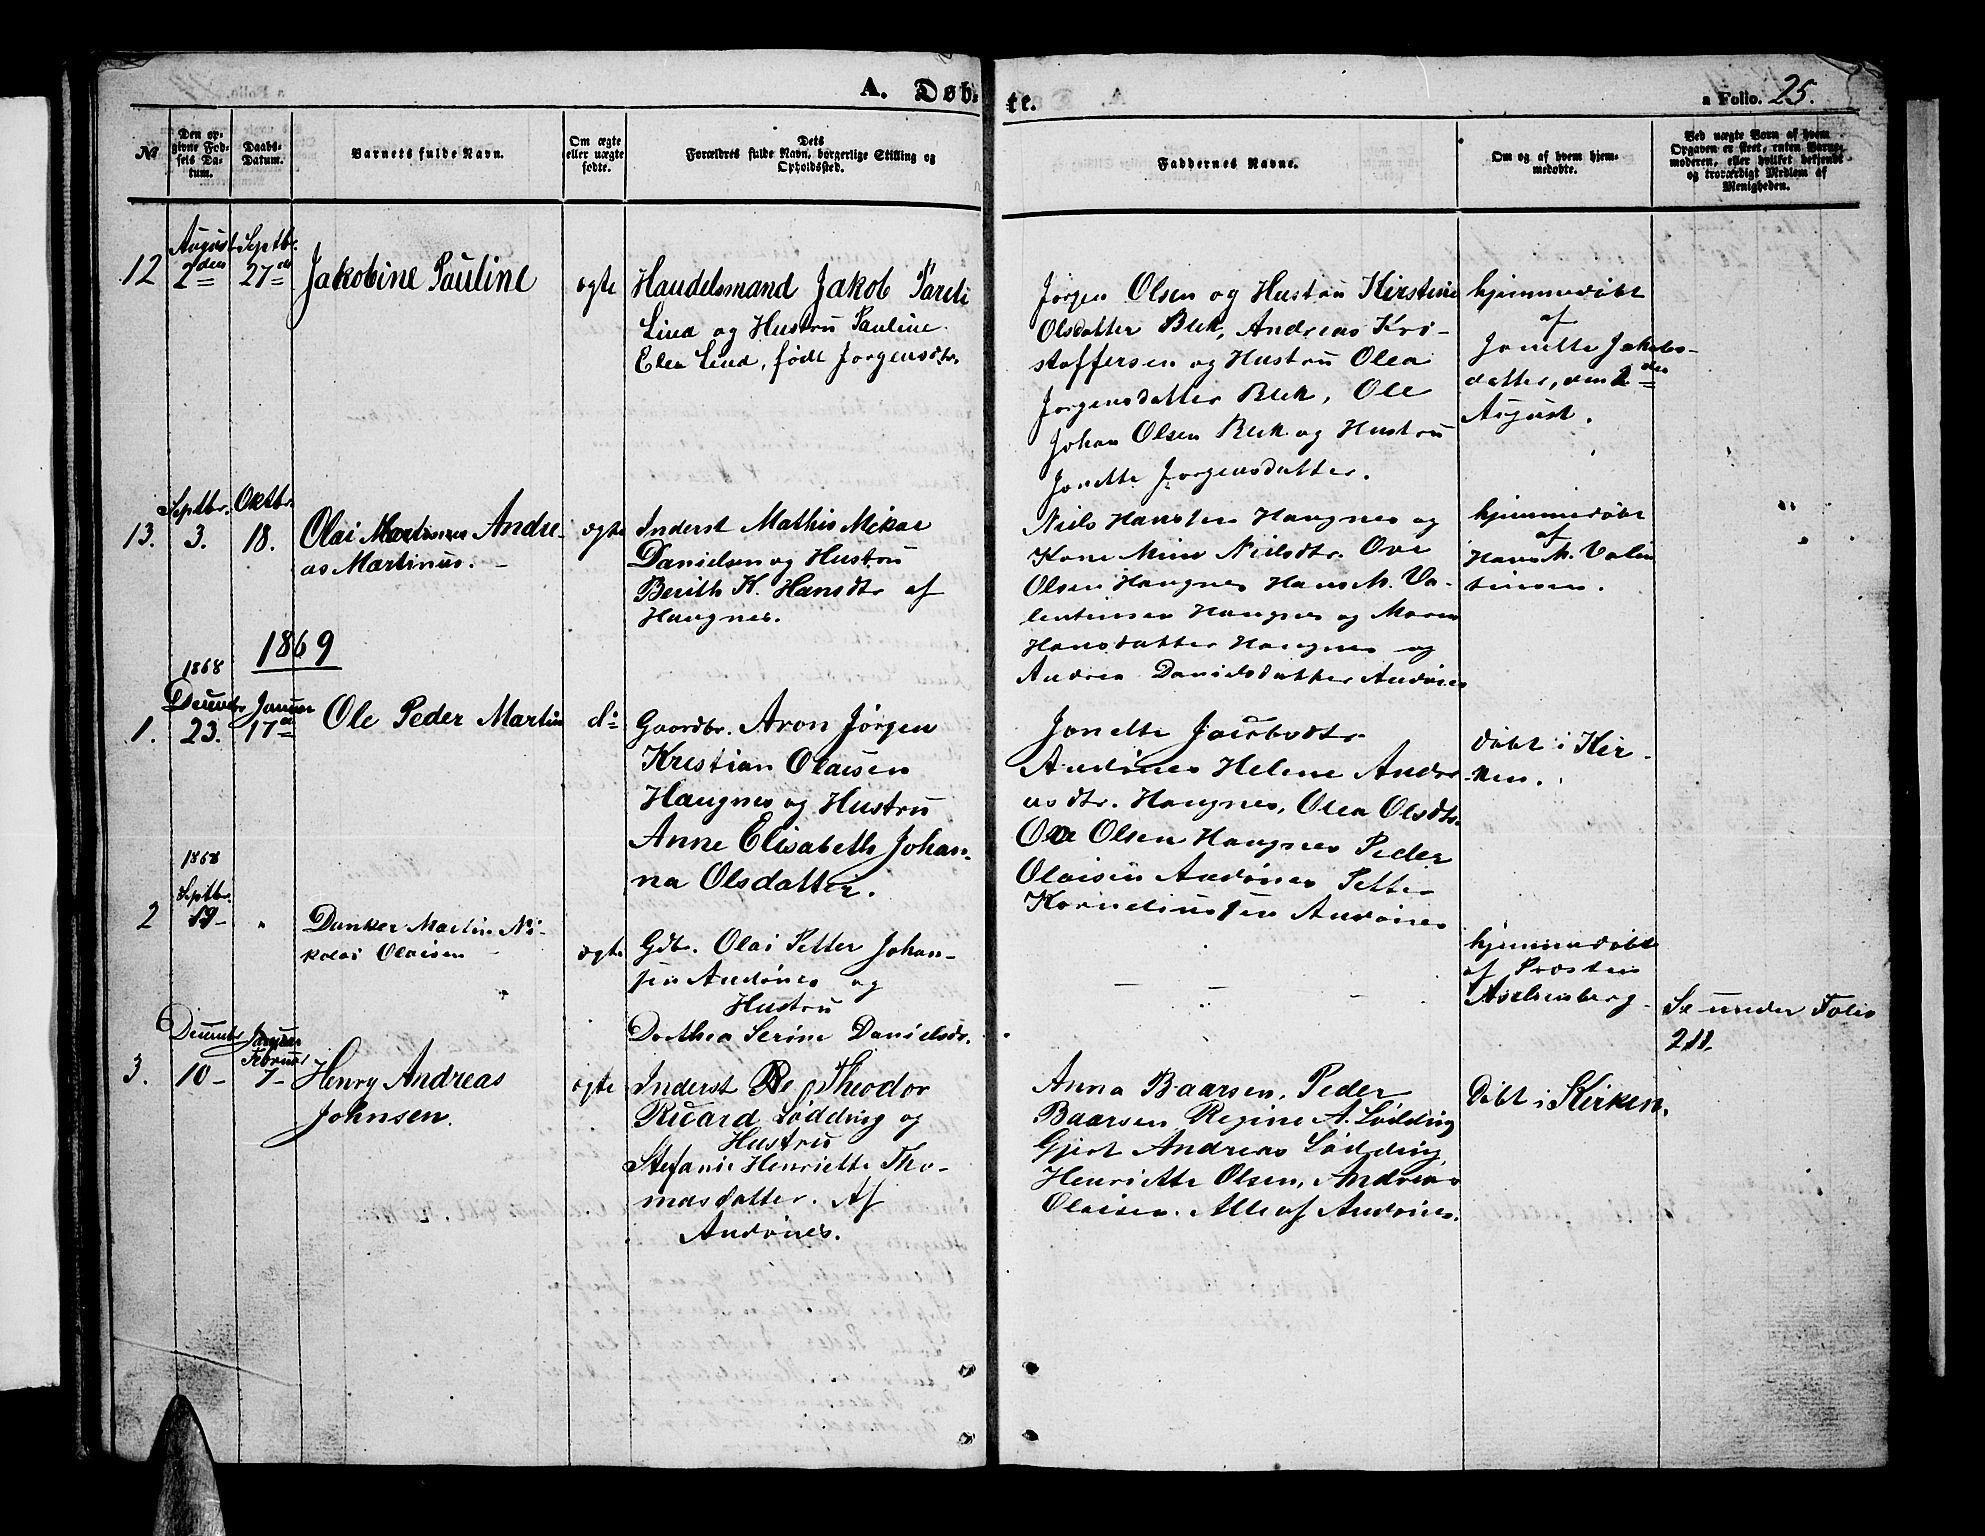 A. Døb-
te.
a Folio. 25.
No
Den opgivne Fødsels Datum.
Daabs-Datum.
Barnets fulde Navn.
Om ægte eller uægte fødte.
Dets Forældres fulde Navn, borgerlige Stilling og Opholdssted.
Faddernes Navne.
Om og af hvem hjemmedøbte.
Ved uægte Børn af hvem Opgaven er skeet, enten Barnemoderen, eller hvilket bekjendt og troværdigt Medlem af Menigheden.
12
August 2den
Septbr. 27de
Jakobine Pauline
ægte
Handelsmand Jakob Pareli
Lind og Hustru Pauline
Elen Lind, født Jørgensdtr.
Jørgen Olsen og Hustru Kirstine
Olsdatter Blek, Andreas Kri-
stoffersen og Hustru Olea
Jørgensdatter Blek, Ole
Johan Olsen Blek og Hustru
Jonette Jørgensdatter.
hjemmedøbt
af
Jonette Jakobs-
datter, den 2den
August.
13.
Septbr. 3.
Oktbr. 18.
Olai Martinus Andre-
as Martinus.
ægte
Inderst Mathis Mikal
Danielsen og Hustru
Berith K. Hansdtr af
Haugnes.
Niels Hansen Haugnes og
Kone Mine Nielsdtr. Ove
Olsen Haugnes Hans M. Va-
lentinsen Haugnes og Maren
Hansdatter Haugnes og
Andrea Danielsdatter Andønes
hjemmedøbt
af
Hans M. Valen
tinsen.
1869
1.
1868
Decembr 23.
Januar 17de
Ole Peder Martin
do
Gaardbr. Aron Jørgen
Kristian Olaisen
Haugnes og Hustru
Anne Elisabeth Johan-
na Olsdatter.
Jonette Jacobsdtr
Andønes Helene Andre
asdtr. Haugnes, Olea Olsdtr.
Ove Olsen Haugnes Peder
Olaisen Andønes Petter
Korneliussen Andønes
døbt i Kir-
ken.
2
1868
Septbr. 19-
"
Danker Martin Ni-
kolai Olaisen
ægte
Gdbr. Olai Petter Johan-
sen Andønes og
Hustru
Dorthea Serine Danielsdr.
hjemmedøbt
af Præsten
Aschenberg
Se under Folio
211.
3.
Decembr 10-
Januar
Februar 7-
Henry Andreas
Johnsen.
ægte
Inderst Theodor
Ricard Lødding og
Hustru
Stefanie Henriette Tho-
masdatter. Af
Andønes.
Anna Baarsen, Peder
Baarsen Regine A. Lødding
Gjert Andreas Lødding,
Henriette Olsen, Andreas
Olaisen. Alle af Andønes.
Døbt i Kirken.